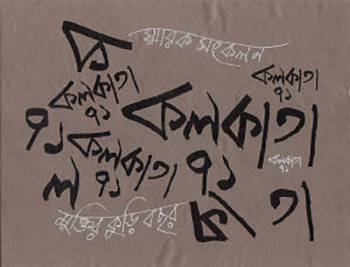 স্মারক সংকলন
ক
কলকাতা
৭১
কলকাতা
৭১
কলকাতা
৭১
৭১
কলকাতা
৭১
কলকাতা
৭১
ল
কা
তা
মুক্তির কুড়ি বছর